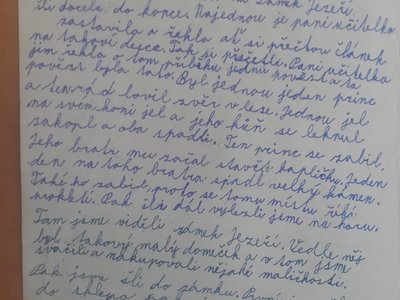 zámek Jezeří.
šli docela do konce. Najednou je paní učitelka
zastavila a řekla ať si přečtou článek
na takové depce. Tak si přečetli. Paní učitelka
jim řekla o tom příběhu jednu pověst a ta
pověst byla tato. Byl jednou jeden princ
a ten rád lovil zvěr v lese. Jednou jel
na svém koni jel a jeho kůň se leknul
zakopl a oba spadli. Ten princ se zabil.
Jeho bratr mu začal stavět kapličku. Jeden
den na toho bratra spadl velký kámen.
Také ho zabil, proto se tomu místu říká
Pak šli dál vylezli jsme na horu.
Tam jsme viděli zámek Jezeří. Vedle něj
byl takový malý domeček a v tom jsme
svačili a nakupovali nějaké maličkosti.
Pak jsme šli do zámku. První
do sklepa